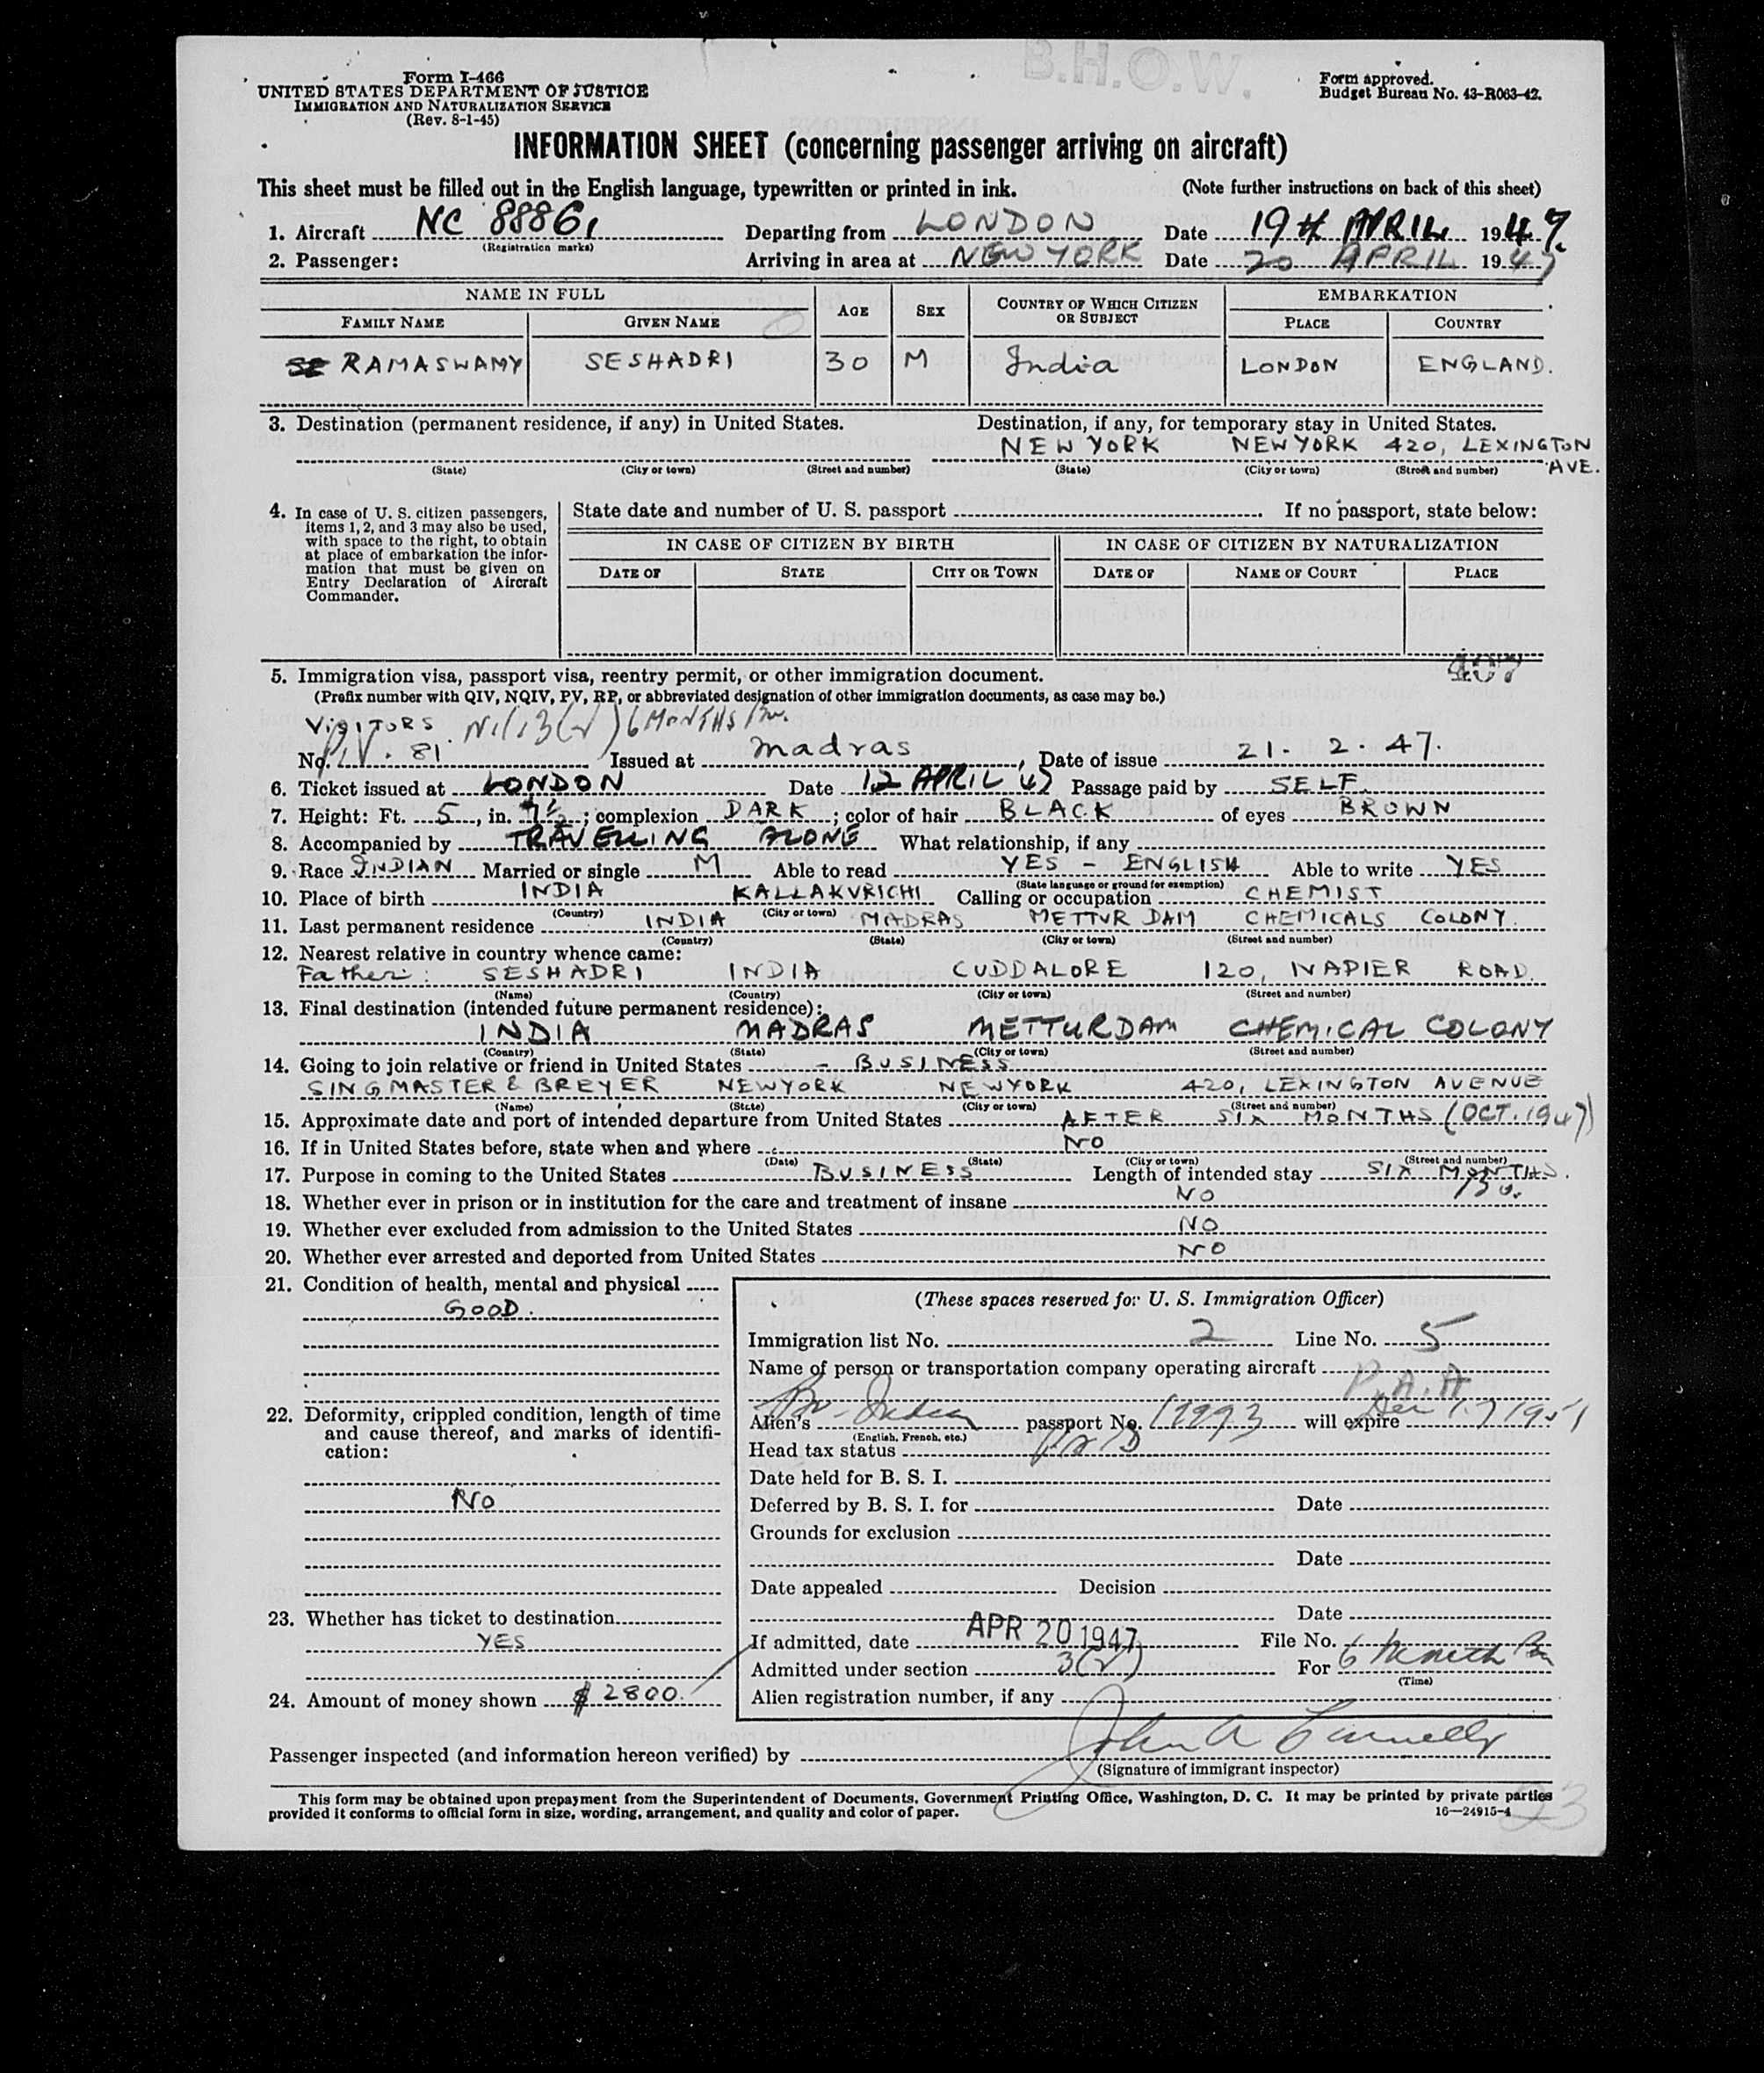 B.H.O.W.
Form I-466
UNITED STATES DEPARTMENT OF JUSTICE
IMMIGRATION AND NATURALIZATION SERVICE
(Rev. 8-1-45)
Form approved.
Budget Bureau No. 43-R063-42.
INFORMATION SHEET (concerning passenger arriving on aircraft)
This sheet must be filled out in the English language, typewritten or printed in ink. (Note further instructions on back of this sheet)
1. Aircraft NC 88861 Departing from LONDON Date 19th APRIL 1947.
(Registration marks)
2. Passenger: Arriving in area at NEW YORK Date 20 APRIL 1947
NAME IN FULL AGE SEX COUNTRY OF WHICH CITIZEN OR SUBJECT EMBARKATION
FAMILY NAME GIVEN NAME PLACE COUNTRY
RAMASWAMY SESHADRI 30 M India LONDON ENGLAND.
3. Destination (permanent residence, if any) in United States. Destination, if any, for temporary stay in United States.
NEW YORK NEW YORK 420, LEXINGTON AVE.
(State) (City or town) (Street and number) (State) (City or town) (Street and number)
4. In case of U. S. citizen passengers, items 1, 2, and 3 may also be used, with space to the right, to obtain at place of embarkation the information that must be given on Entry Declaration of Aircraft Commander.
State date and number of U. S. passport If no passport, state below:
IN CASE OF CITIZEN BY BIRTH IN CASE OF CITIZEN BY NATURALIZATION
DATE OF STATE CITY OR TOWN DATE OF NAME OF COURT PLACE
407
5. Immigration visa, passport visa, reentry permit, or other immigration document.
(Prefix number with QIV, NQIV, PV, RP, or abbreviated designation of other immigration documents, as case may be.)
VISITORS 3(2) 6 MONTHS
No. P.V. 81 Issued at Madras, Date of issue 21. 2. 47.
6. Ticket issued at LONDON Date 12 APRIL 47 Passage paid by SELF
7. Height: Ft. 5, in. 7½; complexion DARK; color of hair BLACK of eyes BROWN
8. Accompanied by TRAVELLING ALONE What relationship, if any
9. Race INDIAN Married or single M Able to read YES - ENGLISH Able to write YES
(State language or ground for exemption)
10. Place of birth INDIA KALLAKURICHI Calling or occupation CHEMIST
(Country) (City or town)
11. Last permanent residence INDIA MADRAS METTUR DAM CHEMICALS COLONY.
(Country) (State) (City or town) (Street and number)
12. Nearest relative in country whence came:
Father: SESHADRI INDIA CUDDALORE 120, NAPIER ROAD.
(Name) (Country) (City or town) (Street and number)
13. Final destination (intended future permanent residence):
INDIA MADRAS METTURDAM CHEMICAL COLONY
(Country) (State) (City or town) (Street and number)
14. Going to join relative or friend in United States - BUSINESS
SINGMASTER & BREYER NEWYORK NEWYORK 420, LEXINGTON AVENUE
(Name) (State) (City or town) (Street and number)
15. Approximate date and port of intended departure from United States AFTER SIX MONTHS (OCT. 1947)
16. If in United States before, state when and where NO
(Date) (State) (City or town) (Street and number)
17. Purpose in coming to the United States BUSINESS Length of intended stay SIX MONTHS.
18. Whether ever in prison or in institution for the care and treatment of insane NO
19. Whether ever excluded from admission to the United States NO
20. Whether ever arrested and deported from United States NO
21. Condition of health, mental and physical
GOOD.
22. Deformity, crippled condition, length of time and cause thereof, and marks of identification:
NO
23. Whether has ticket to destination
YES
24. Amount of money shown $2800.
(These spaces reserved for U. S. Immigration Officer)
Immigration list No. 2 Line No. 5
Name of person or transportation company operating aircraft
P.A.A
Alien's Br-Indian passport No. will expire Dec 17 1951
(English, French, etc.)
Head tax status
Date held for B. S. I.
Deferred by B. S. I. for Date
Grounds for exclusion
Date
Date appealed Decision
Date
If admitted, date APR 20 1947 File No.
Admitted under section 3(2) For 6 Month
(Time)
Alien registration number, if any
Passenger inspected (and information hereon verified) by John A
(Signature of immigrant inspector)
This form may be obtained upon prepayment from the Superintendent of Documents, Government Printing Office, Washington, D. C. It may be printed by private parties
provided it conforms to official form in size, wording, arrangement, and quality and color of paper. 16—24915-4
23